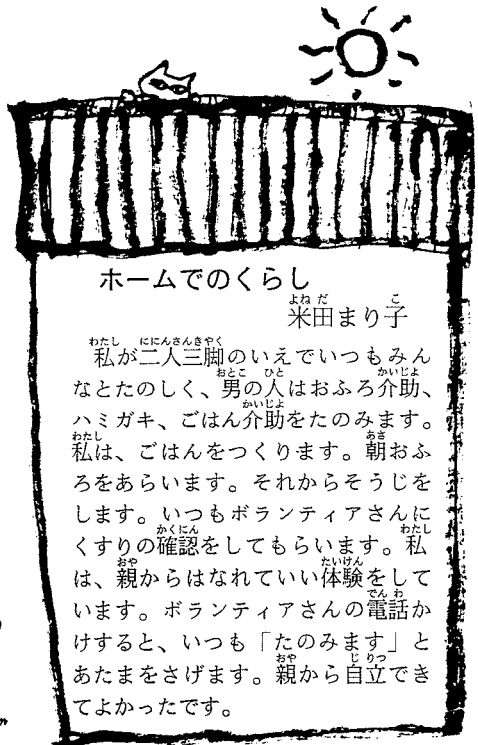 ホームでのくらし
米田まり子
私が二人三脚のいえでいつもみん
なとたのしく、男の人はおふろ介助、
ハミガキ、ごはん介助をたのみます。
私は、ごはんをつくります。朝おふ
ろをあらいます。それからそうじを
します。いつもボランティアさんに
くすりの確認をしてもらいます。私
は、親からはなれていい体験をして
います。ボランティアさんの電話か
けすると、いつも「たのみます」と
あたまをさげます。親から自立でき
てよかったです。